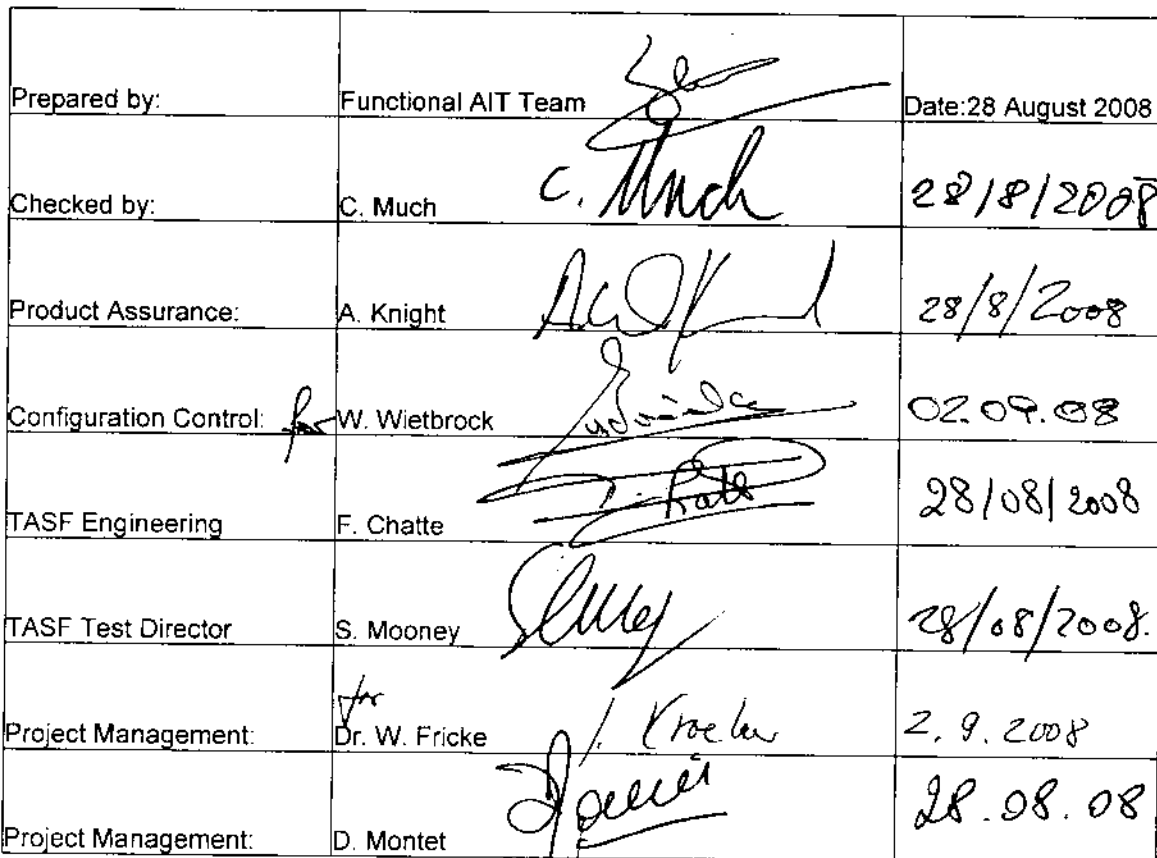 Prepared by: Functional AIT Team Date:28 August 2008
Checked by: C. Much C. Much 28/8/2008
Product Assurance: A. Knight 28/8/2008
Configuration Control: for W. Wietbrock 02.09.08
TASF Engineering F. Chatte 28/08/2008
TASF Test Director S. Mooney 28/08/2008.
for
Project Management: Dr. W. Fricke 2.9.2008
Project Management: D. Montet 28.08.08